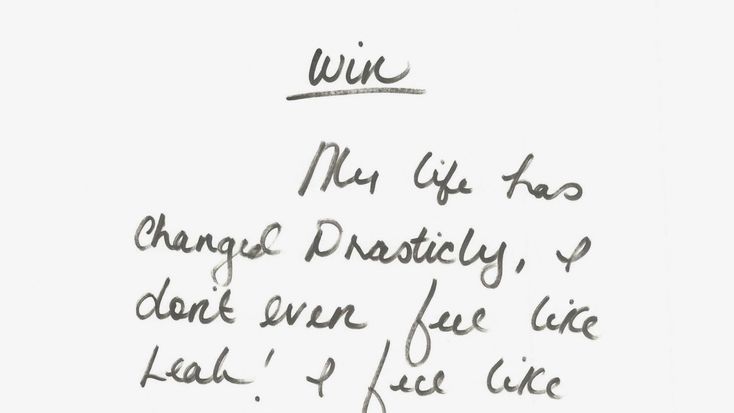 Win
My life has
Changed Drasticly, I
don't even feel like
Leah! I feel like